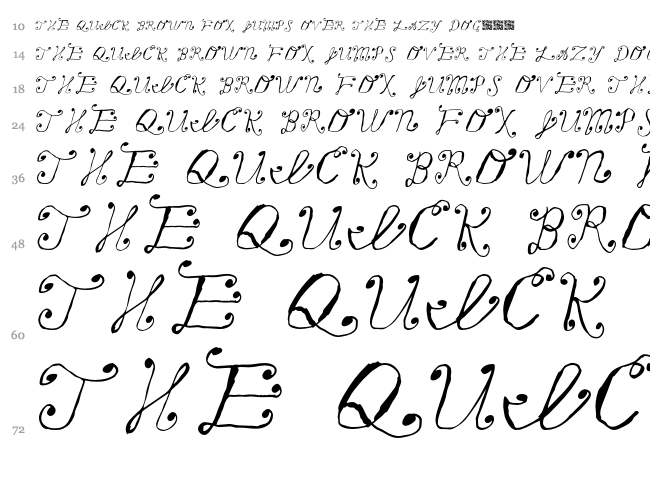 10 THE QUICK BROWN FOX JUMPS OVER THE LAZY DOG
14 THE QUICK BROWN FOX JUMPS OVER THE LAZY DO
18 THE QUICK BROWN FOX JUMPS OVER TH
24 THE QUICK BROWN FOX JUMPS
36 THE QUICK BROWN
48 THE QUICK BRO
60 THE QUICK
72 THE QUIC